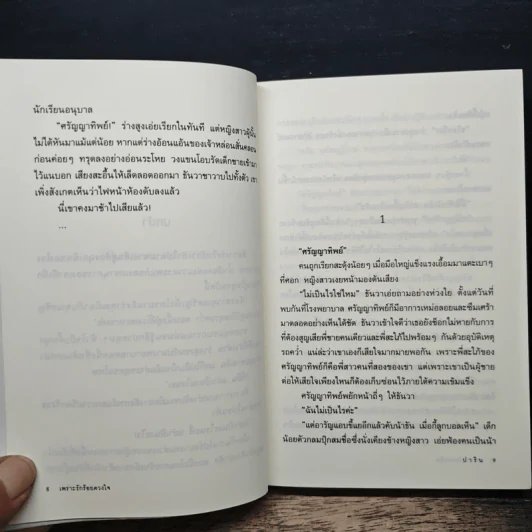 นักเรียนอนุบาล
“ศรัญญาทิพย์!” ร่างสูงเอ่ยเรียกในทันที แต่หญิงสาวผู้นั้น
ไม่ได้หันมาแม้แต่น้อย หากแต่ร่างอ้อนแอ้นของเจ้าหล่อนสั่นคลอน
ก่อนค่อยๆ ทรุดลงอย่างอ่อนระโหย วงแขนโอบรัดเด็กชายเข้ามา
ไว้แนบอก เสียงสะอื้นไห้เล็ดลอดออกมา ธันวาชาวาบไปทั้งตัว เขา
เพิ่งสังเกตเห็นว่าไฟหน้าห้องดับลงแล้ว
นี่เขาคงมาช้าไปเสียแล้ว!
...
6 เพราะรักร้อยดวงใจ
1
“ศรัญญาทิพย์”
คนถูกเรียกสะดุ้งน้อยๆ เมื่อมือใหญ่แข็งแรงเอื้อมมาแตะเบาๆ
ที่ศอก หญิงสาวเงยหน้ามองต้นเสียง
“ไม่เป็นไรใช่ไหม” ธันวาเอ่ยถามอย่างห่วงใย ตั้งแต่วันที่
พบกันที่โรงพยาบาล ศรัญญาทิพย์ก็มีอาการเหม่อลอยและซึมเศร้า
มาตลอดอย่างเห็นได้ชัด ธันวาเข้าใจดีว่าเธอยังช็อกไม่หายกับการ
ที่ต้องสูญเสียพี่ชายคนเดียวและพี่สะใภ้ไปพร้อมๆ กันด้วยอุบัติเหตุ
รถคว่ำ แน่ล่ะว่าเขาเองก็เสียใจมากมายพอกัน เพราะพี่สะใภ้ของ
ศรัญญาทิพย์ก็คือพี่สาวคนที่สองของเขา แต่เพราะเขาเป็นผู้ชาย
ต่อให้เสียใจเพียงไหนก็ต้องเก็บซ่อนไว้ภายใต้ความเข้มแข็ง
ศรัญญาทิพย์พยักหน้าถี่ๆ ให้ธันวา
“ฉันไม่เป็นไรค่ะ”
“แต่อารัญแอบขี้แยอีกแล้วคับน้าธัน เมื่อกี้ลูกบอลเห็น” เด็ก
น้อยตัวกลมปุ๊กสมชื่อซึ่งนั่งเคียงข้างหญิงสาว เอ่ยฟ้องคนเป็นน้า
ปาริน